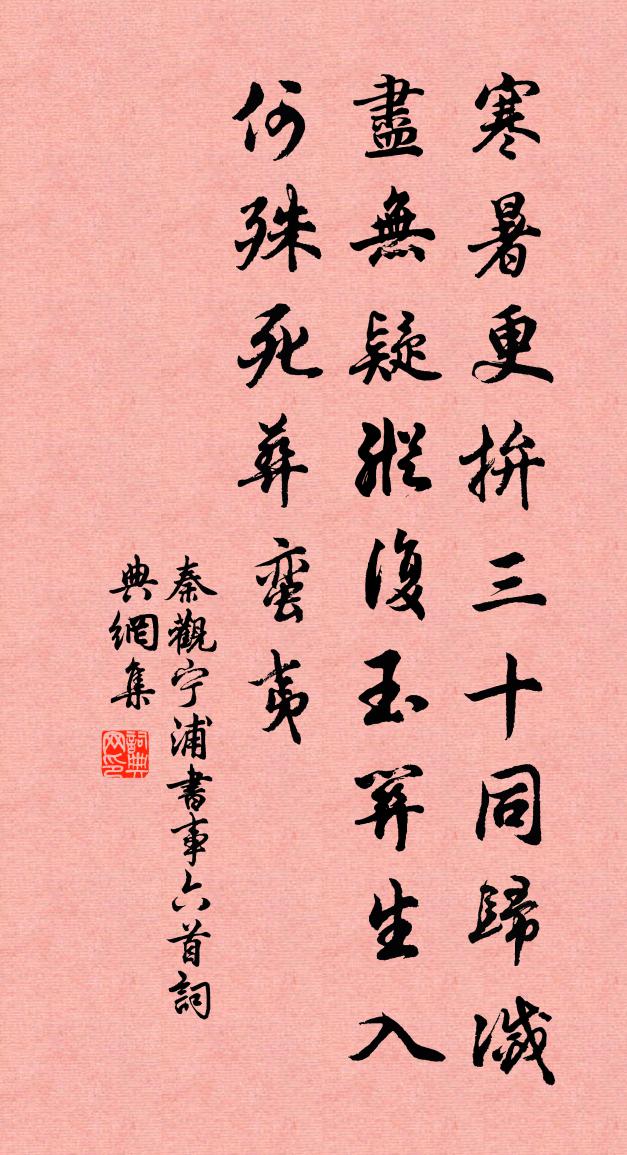 寒暑更拚三十同歸滅
盡無疑縱復玉關生入
何殊死葬蛮夷
秦觀宁浦書事六首詞
典網集
詞典网印